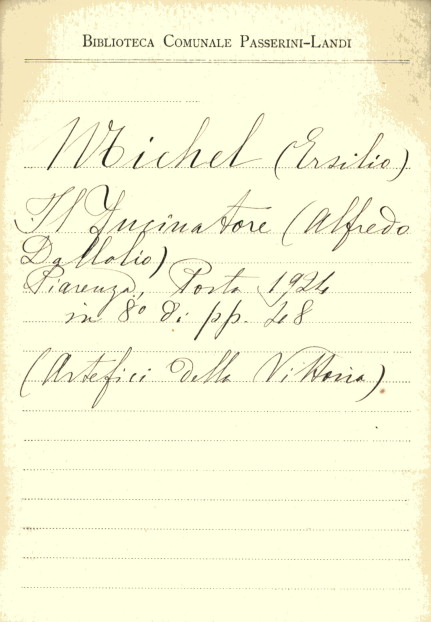 BIBLIOTECA COMUNALE PASSERINI-LANDI
Michel (Ersilio)
Il Fucinatore (Alfredo
Dallolio)
Piacenza, Porta 1924
in 8º di pp. 48
(Artefici della Vittoria)